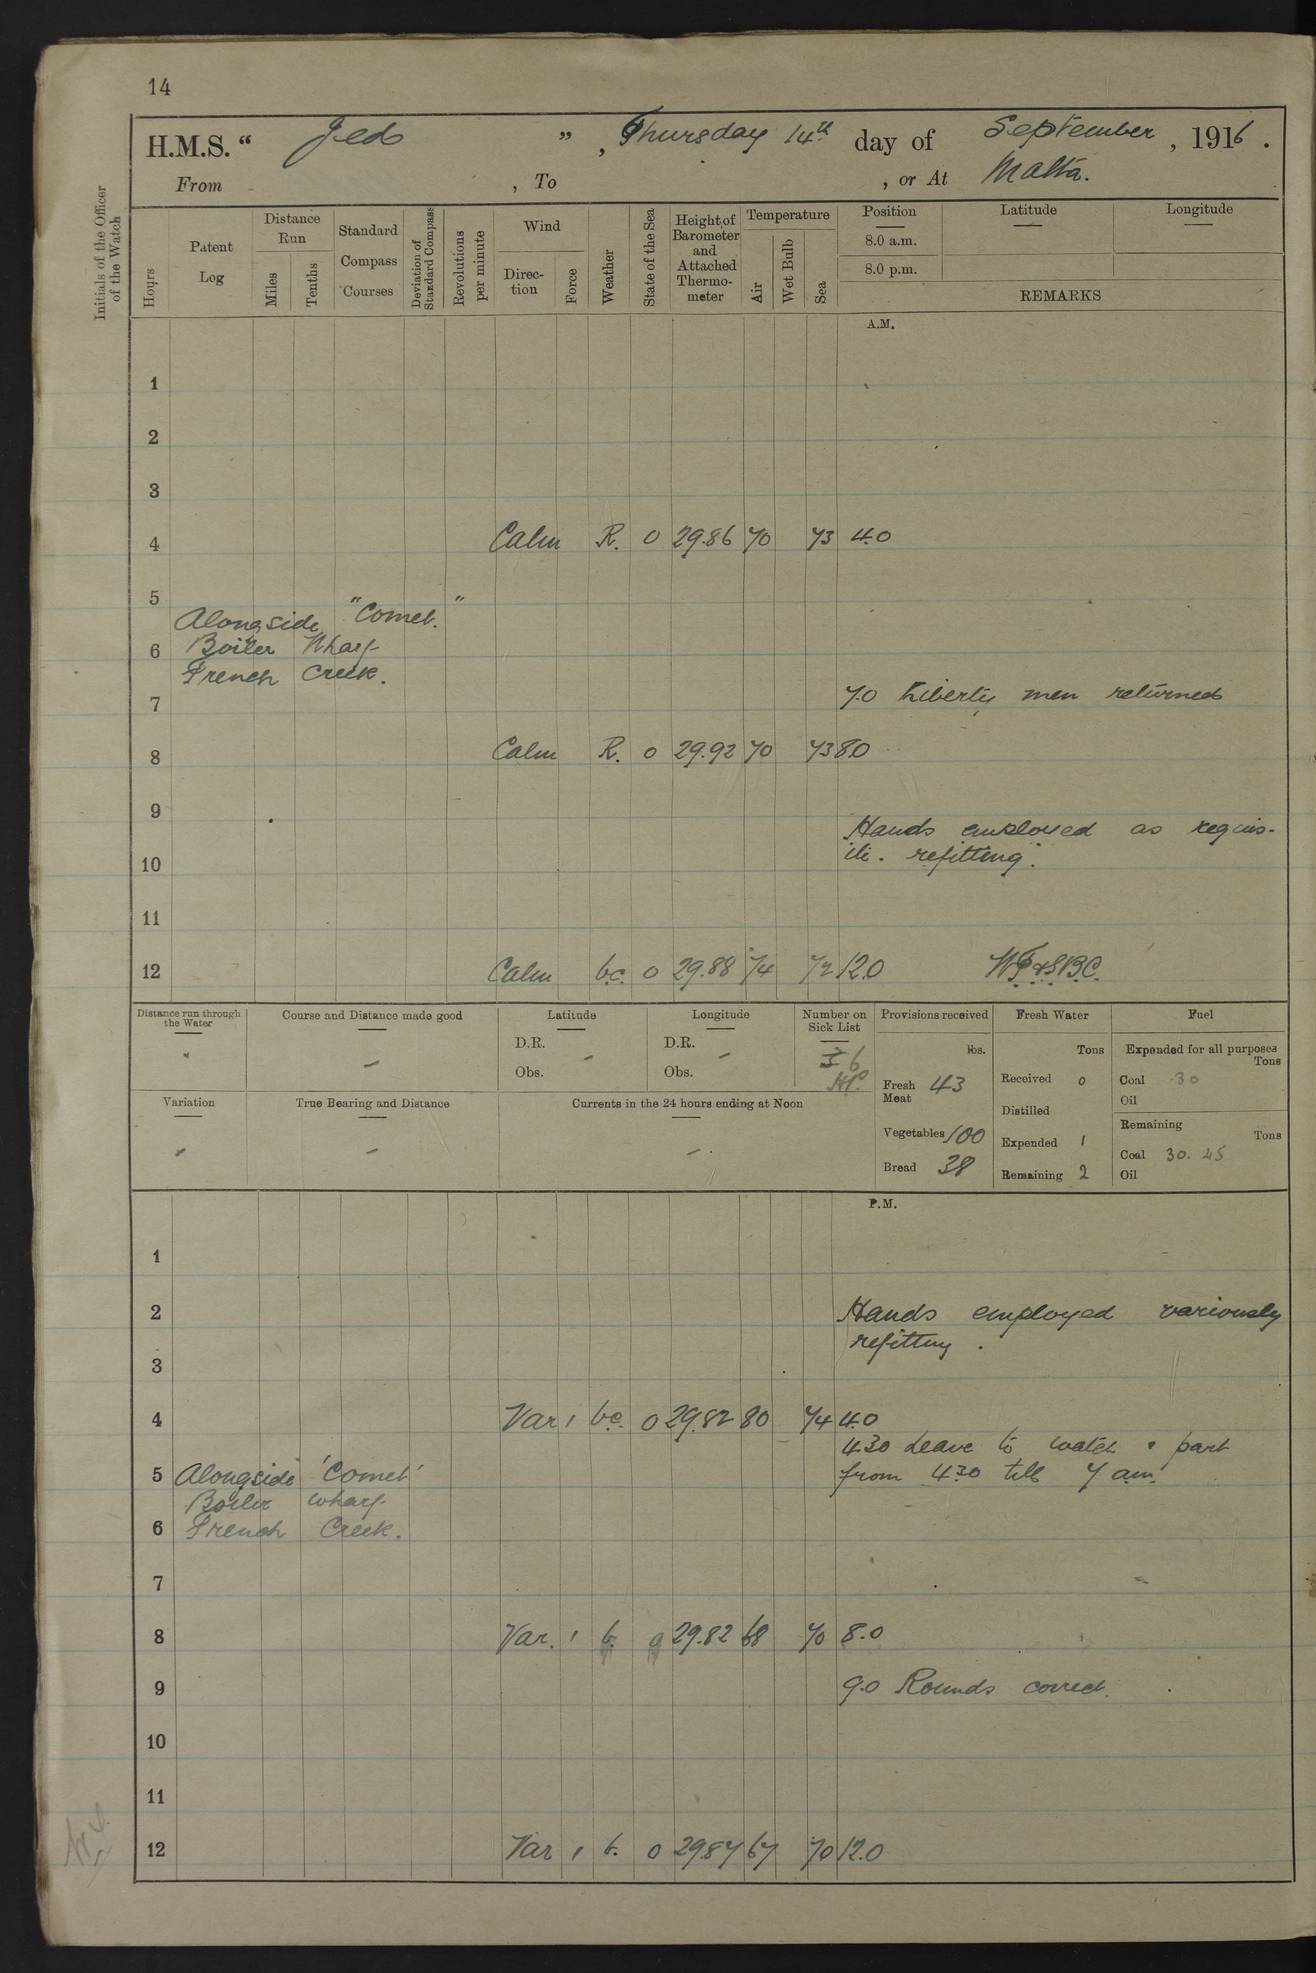 14
H.M.S. " Jed ", Thursday 14th day of September, 1916.
From , To , or At Malta.
Initials of the Officer of the Watch
Hours
Patent Log
Distance Run
Miles
Tenths
Standard Compass Courses
Deviation of Standard Compass
Revolutions per minute
Wind
Direction
Force
Weather
State of the Sea
Height of Barometer and Attached Thermometer
Temperature
Air
Wet Bulb
Sea
Position Latitude Longitude
8.0 a.m.
8.0 p.m.
REMARKS
A.M.
1
2
3
4 Calm R. 0 29.86 70 73 4.0
5
Alongside "Comet."
6 Boiler Wharf
French Creek.
7 7.0 Liberty men returned
8 Calm R. 0 29.92 70 73 8.0
9
Hands employed as requis-
10 ite. refitting.
11
12 Calm bc. 0 29.88 74 72 12.0
Distance run through the Water
Course and Distance made good
Latitude
D.R. –
Obs.
Longitude
D.R. –
Obs.
Number on Sick List
6
Provisions received
lbs.
Fresh Meat 43
Vegetables 100
Bread 38
Fresh Water
Tons
Received 0
Distilled
Expended 1
Remaining 2
Fuel
Expended for all purposes
Tons
Coal 30
Oil
Remaining
Tons
Coal 30. 45
Oil
Variation
True Bearing and Distance
Currents in the 24 hours ending at Noon
P.M.
1
2 Hands employed variously
refitting.
3
4 Var 1 bc. 0 29.82 80 74 4.0
4.30 Leave to watch & part
5 Alongside 'Comet' from 4.30 till 7 am.
Boiler wharf
6 French Creek.
7
8 Var. 1 b. 0 29.82 68 70 8.0
9 9.0 Rounds correct.
10
11
12 Var 1 b. 0 29.87 67 70 12.0